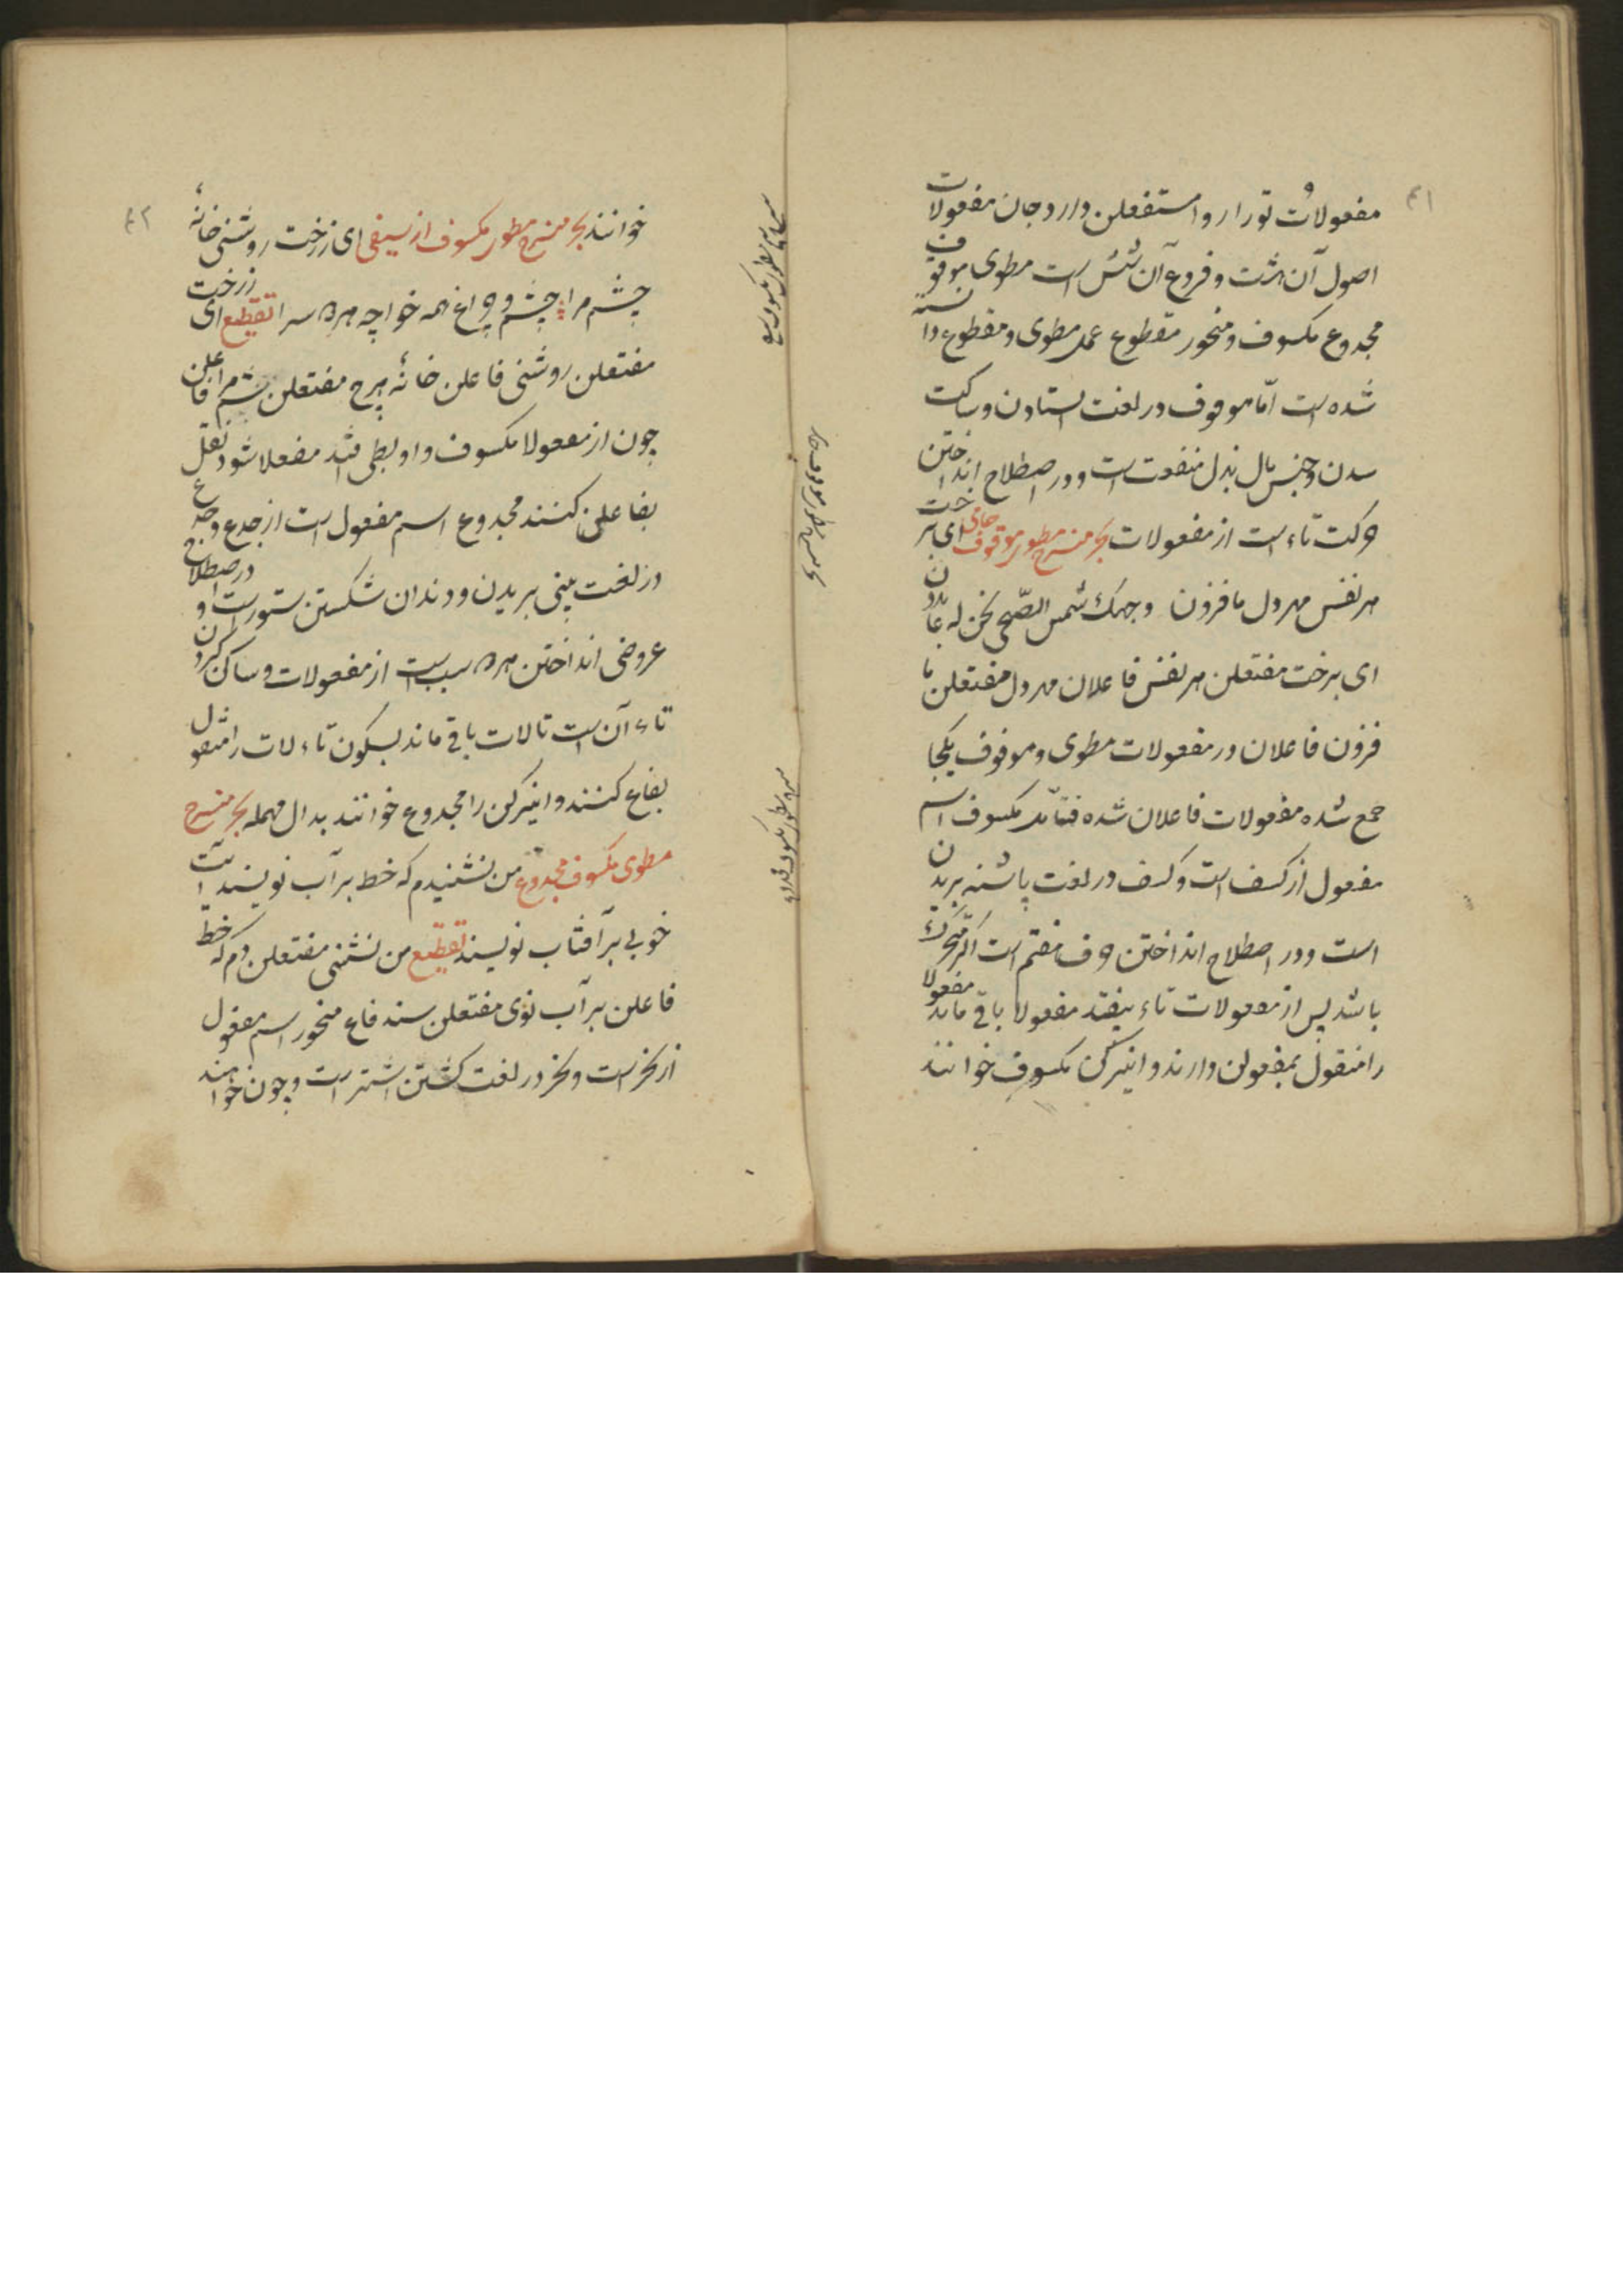 ۴۱
مفعولاتُ تو را روا مستفعلن دارد و جان مفعولات
اصول آن هشت و فروع آن شش است مطوی موقوف
مجدوع مکسوف و منحور مقطوع عمل مطوی و مقطوع دانسته
شده است امّا موقوف در لغت استادن و ساکت
شدن و حبس مال بذل منفعت است و در اصطلاح انداختن
حرکت تاء است از مفعولات بحر منسرح مطوی موقوف جامی ای برخت
هر نفس مهر دل ما فزون وجهک شمس الضحی نحن له عابدون
ای برخت مفتعلن هر نفس فاعلان مهر دل مفتعلن ما
فزون فاعلان در مفعولات مطوی و موقوف یکجا
جمع شده مفعولات فاعلان شده فتأمل مکسوف اسم
مفعول از کسف است و کسف در لغت پاشنه بریدن
است و در اصطلاح انداختن حرف هفتم است اگر متحرک
باشد پس از مفعولات تاء بیفتد مفعولا باقی ماند مفعولا
را منقول بمفعولن دارند و اینرکن مکسوف خوانند
۴۲
خوانند بحر منسرح مطوی مکسوف از سیفی ای ز رخت روشنی خانهٔ
چشم مرا چشم و چراغ همه خواجه هر دو سرا تقطیع ای ز رخت
مفتعلن روشنی فاعلن خانهٔ چ مفتعلن شم مرا فاعلن
چون از مفعولا مکسوف واو بطی فتد مفعلا شود نقل
بفاعلن کنند مجدوع اسم مفعول است از جدع و جدع
در لغت بینی بریدن و دندان شکستن ستور است و در اصطلاح
عروضی انداختن هر دو سبب است از مفعولات و ساکن کردن
تاء آن است تا لات باقی ماند بسکون تاء لات را منقول
بفاع کنند و اینرکن را مجدوع خوانند بدال مهمله بحر منسرح
مطوی مکسوف مجدوع من نشنیدم که خط بر آب نویسند آیت
خوبی بر آفتاب نویسند تقطیع من نشنی مفتعلن دم که خط
فاعلن بر آب نوی مفتعلن سند فاع منحور اسم مفعول
از نحر است و نحر در لغت کشتن اشتر است و چون خواهند